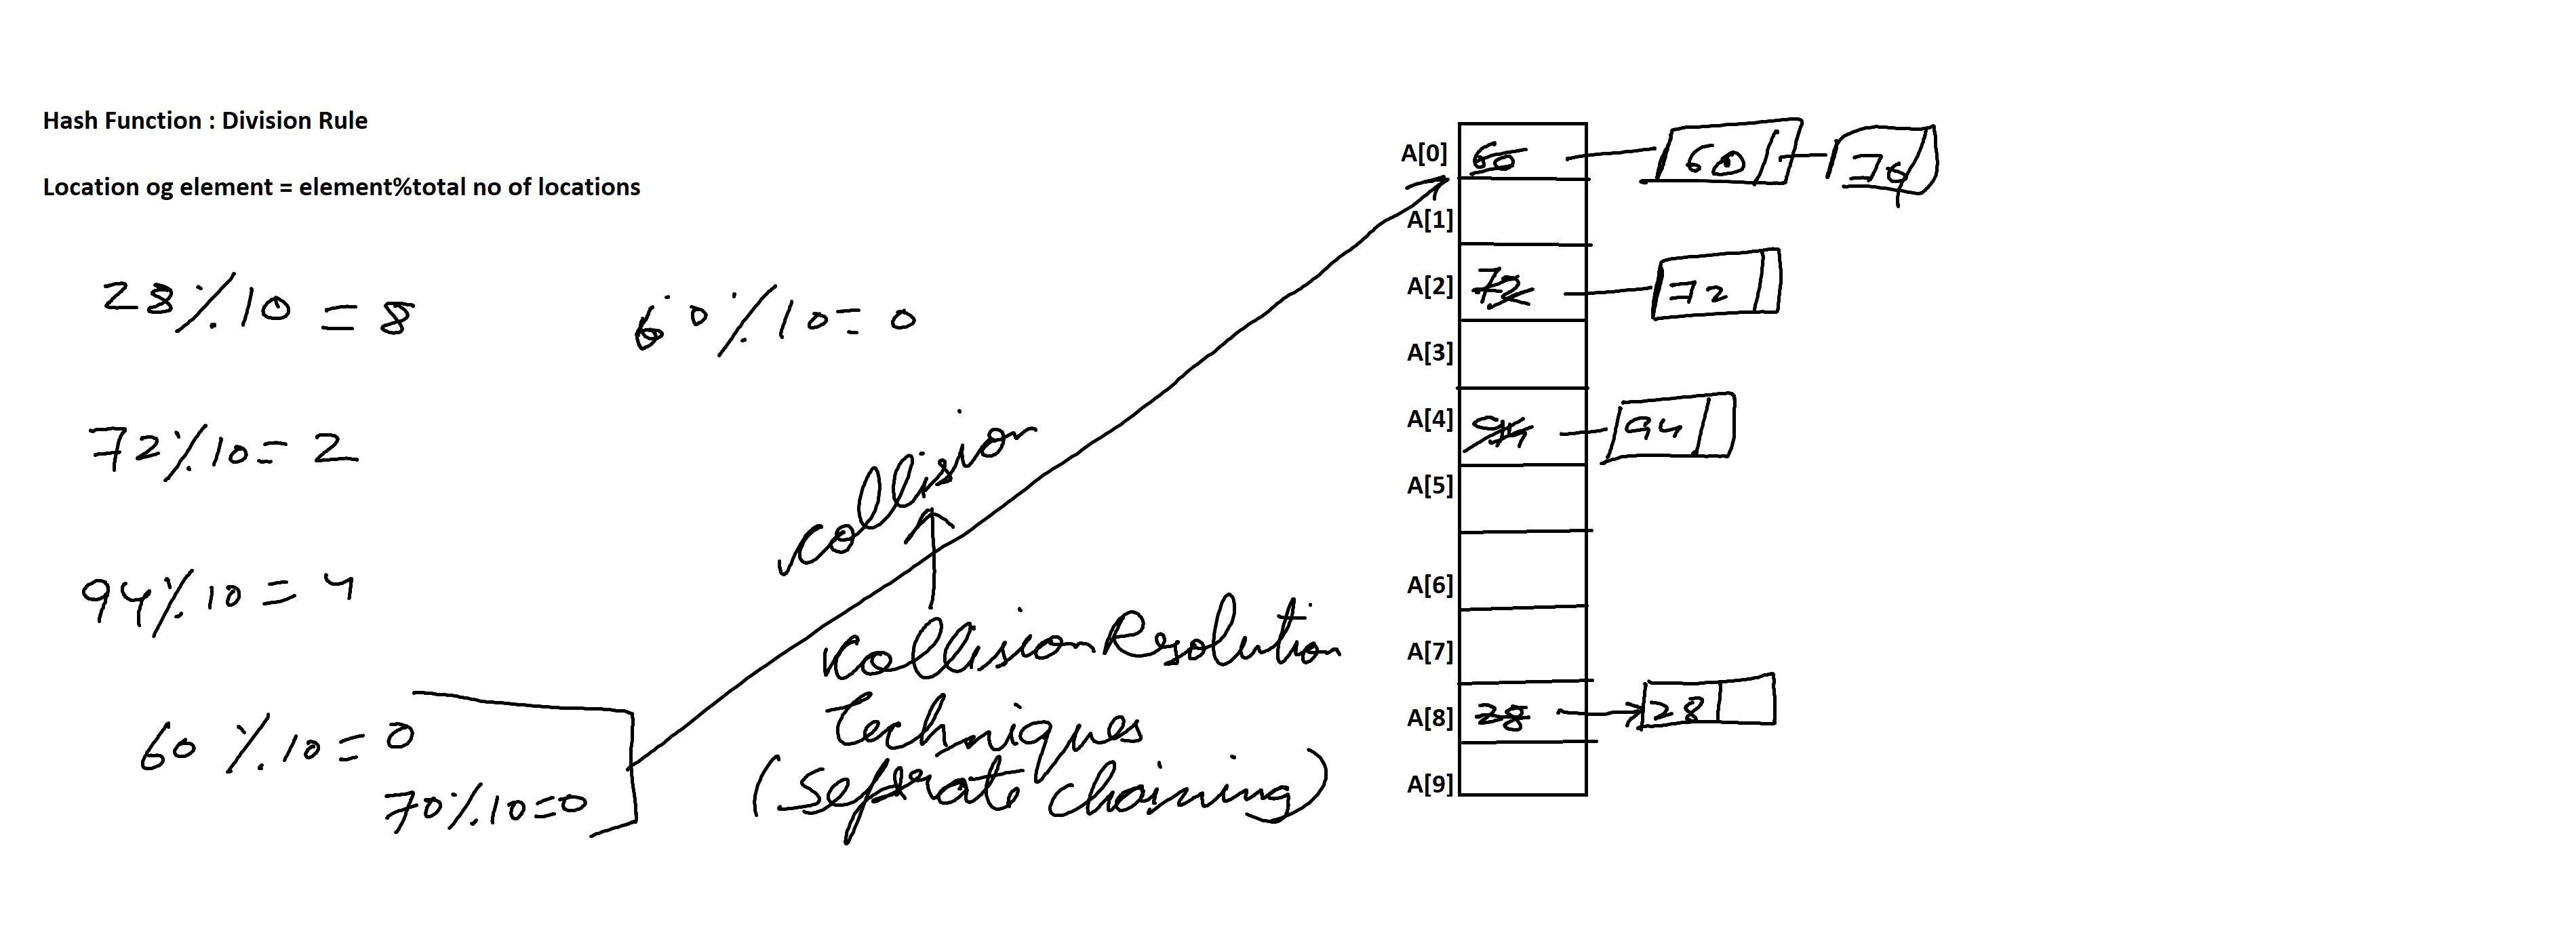 Hash Function : Division Rule
Location og element = element%total no of locations
28%10 = 8
60%10=0
72%10=2
94%10=4
60%10=0
70%10=0
collision
Collision Resolution
techniques
(seperate chaining)
A[0] 60 60 70
A[1]
A[2] 72 72
A[3]
A[4] 94 94
A[5]
A[6]
A[7]
A[8] 28 28
A[9]